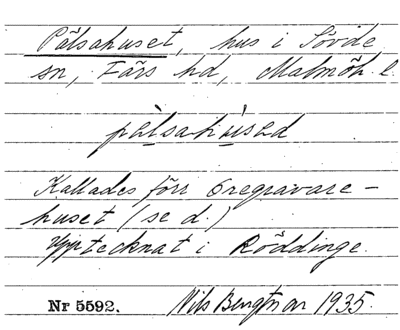 Pålsahuset, hus i Sövde
sn, Färs hd, Malmöh. l.
pålsahúsed
Kallades förr Gregravare-
huset (se d.)
Upptecknat i Röddinge.
Nr 5592. Nils Bengtson 1935.